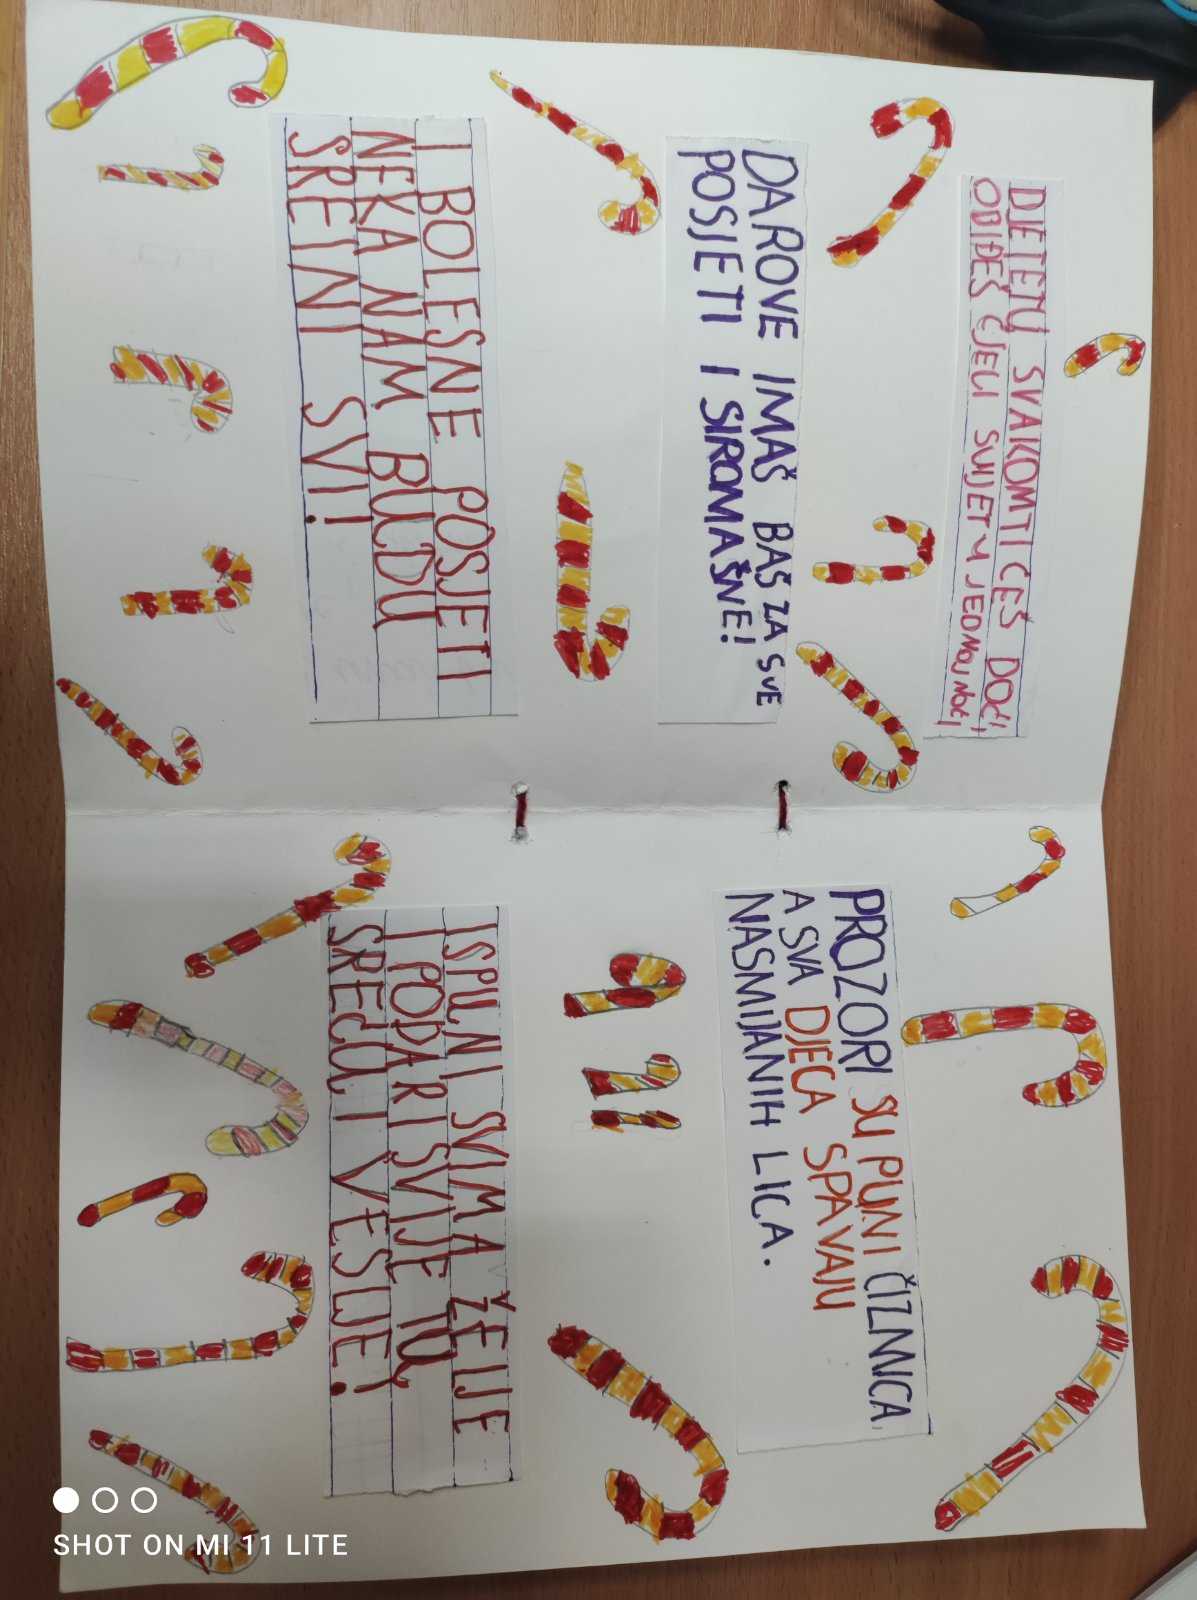 DJETETU SVAKOM TI ĆEŠ DOĆI,
OBIĐEŠ CJELI SVIJET U JEDNOJ NOĆI,
DAROVE IMAŠ BAŠ ZA SVE
POSJETI I SIROMAŠNE!
I BOLESNE POSJETI
NEKA NAM BUDU
SRETNI SVI!
PROZORI SU PUNI ČIZMICA,
A SVA DJECA SPAVAJU
NASMIJANIH LICA.
ISPUNI SVIMA ŽELJE
I PODARI SVIJETU
SREĆU I VESELJE!
SHOT ON MI 11 LITE